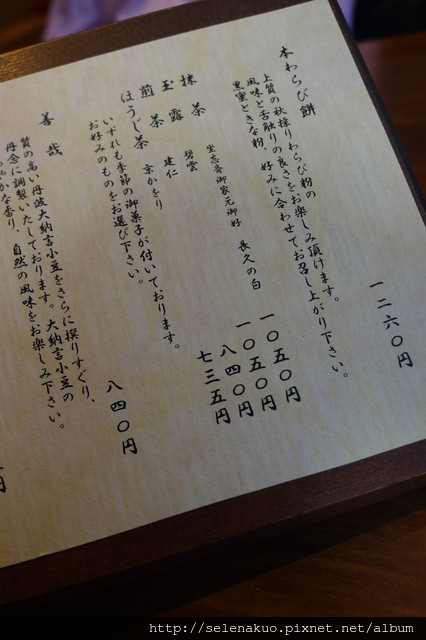 本わらび餅
上質の秋採りわらび粉の
風味と舌触りの良さをお楽しみ頂けます。
黒蜜ときな粉、好みに合わせてお召し上がり下さい。
一二六〇円
抹茶 坐忘斎御家元御好 長久の白 一〇五〇円
玉露 碧雲 一〇五〇円
煎茶 建仁 八四〇円
ほうじ茶 京かをり 七三五円
いずれも季節の御菓子が付いております。
お好みのものをお選び下さい。
善哉
八四〇円
質の高い丹波大納言小豆をさらに撰りすぐり、
丹念に調製いたしております。大納言小豆の
やかな香り、自然の風味をお楽しみ下さい。
円
http://selenakuo.pixnet.net/album